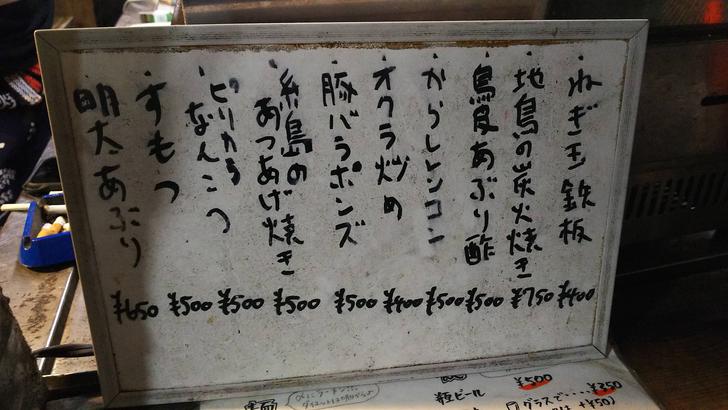 ねぎ玉鉄板 ¥400
地鳥の炭火焼き ¥750
鳥皮あぶり酢 ¥500
からしレンコン ¥500
オクラ炒め ¥400
豚バラポンズ ¥500
糸島の
あつあげ焼き ¥500
ピリから
なんこつ ¥500
すもつ ¥500
明太あぶり ¥650
¥500
瓶ビール
グラスで・・・・ ¥350
+¥50)